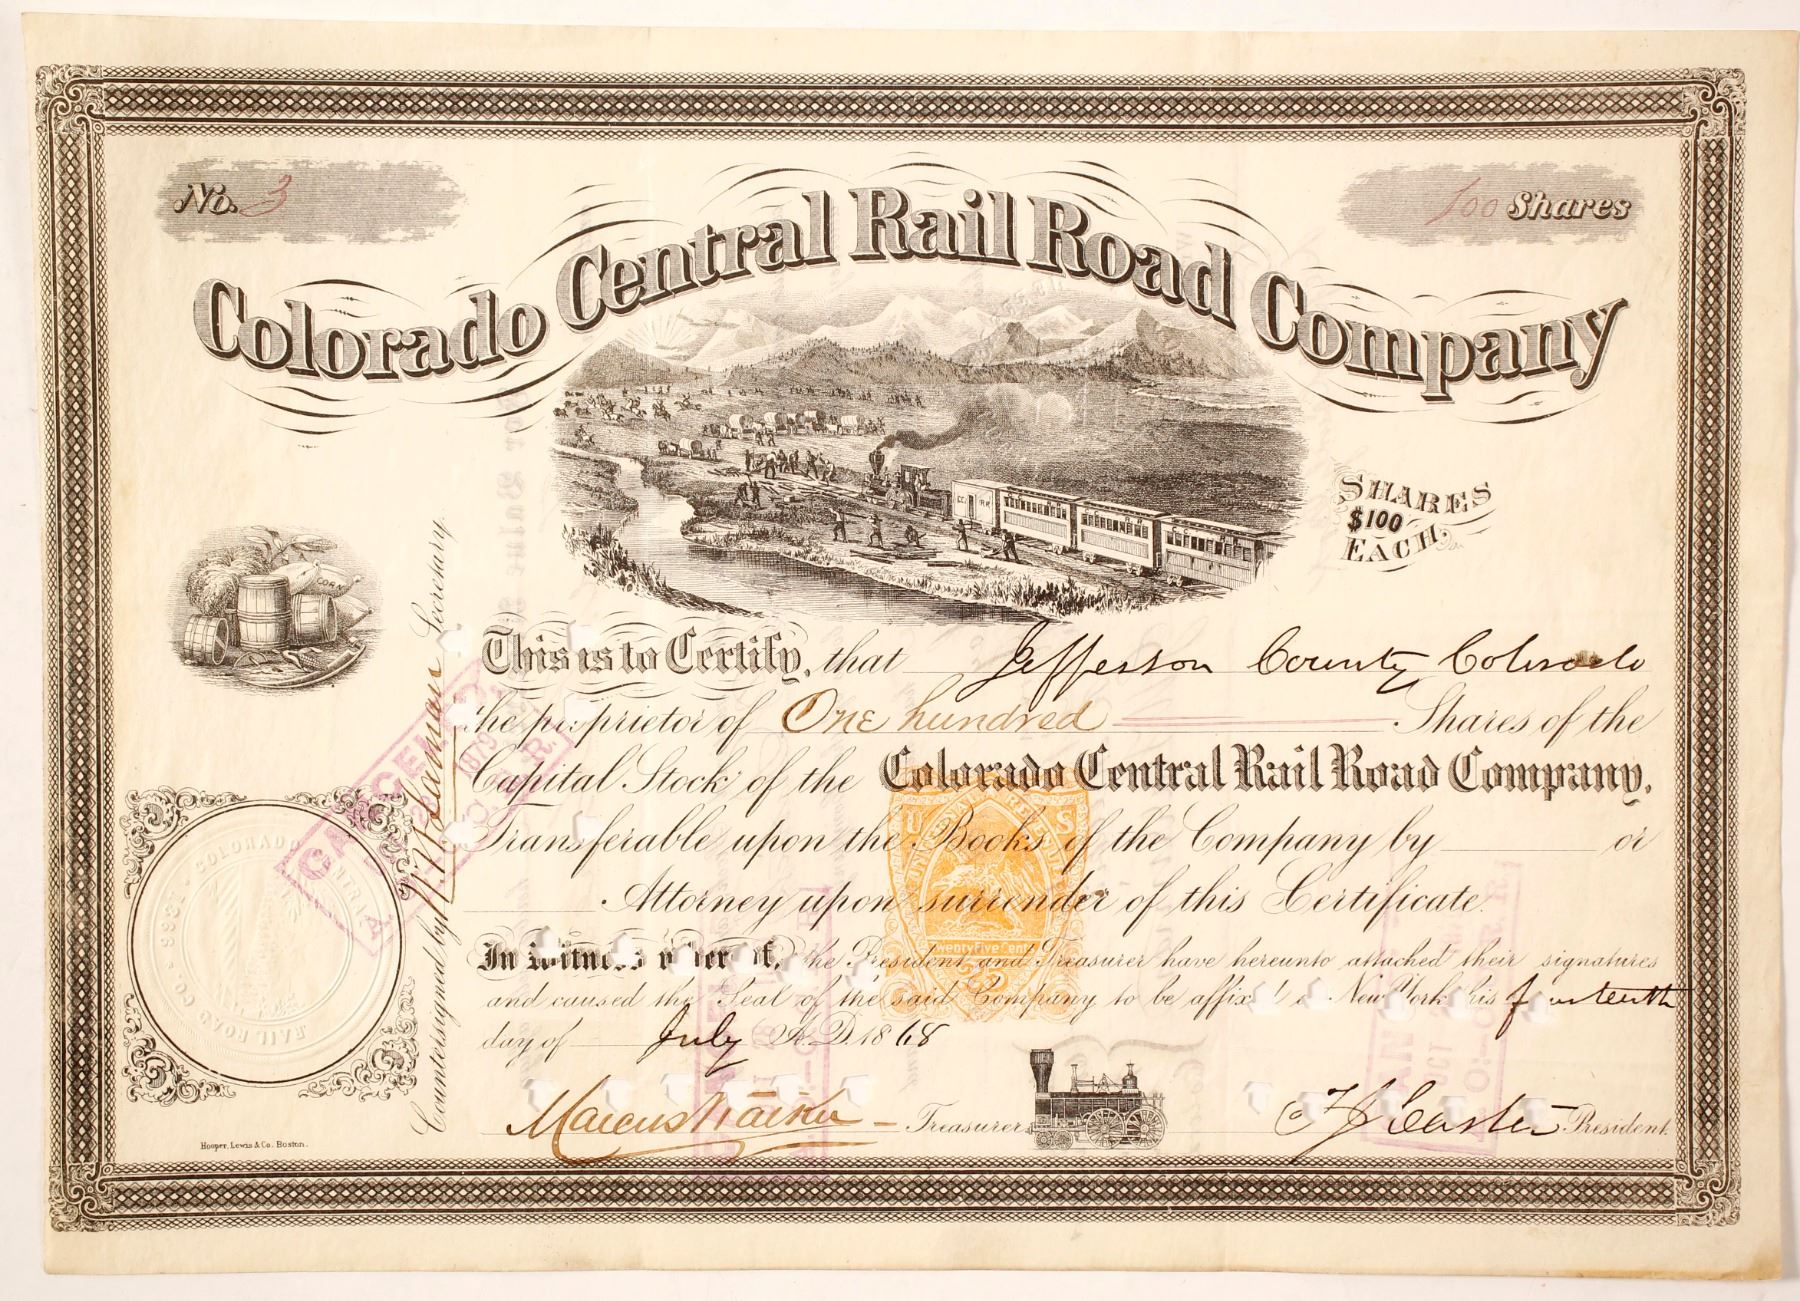 No. 3
100 Shares
Colorado Central Rail Road Company
C.C. R.R.
SHARES
$100
EACH.
CORN
This is to Certify, that Jefferson County Colorado
the proprietor of One hundred Shares of the
Capital Stock of the Colorado Central Rail Road Company,
Transferable upon the Books of the Company by or
Attorney upon surrender of this Certificate.
In Witness whereof, the President and Treasurer have hereunto attached their signatures
and caused the Seal of the said Company to be affixed at New York this fourteenth
day of July A.D. 1868
Countersigned by Secretary.
COLORADO CENTRAL RAIL ROAD CO. 1865
CANCELLED
1879
U S
Twenty Five Cents
25
OCT
Treasurer
President.
Hooper, Lewis & Co. Boston.